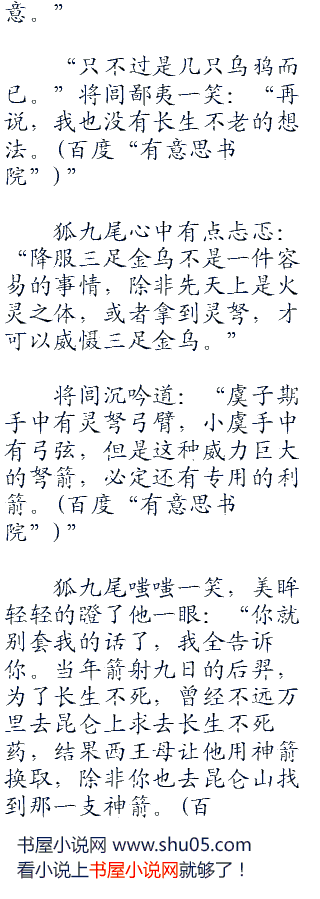 意。”
“只不过是几只乌鸦而
已。”将闾鄙夷一笑：“再
说，我也没有长生不老的想
法。(百度“有意思书
院”)”
狐九尾心中有点忐忑：
“降服三足金乌不是一件容
易的事情，除非先天上是火
灵之体，或者拿到灵弩，才
可以威慑三足金乌。”
将闾沉吟道：“虞子期
手中有灵弩弓臂，小虞手中
有弓弦，但是这种威力巨大
的弩箭，必定还有专用的利
箭。(百度“有意思书
院”)”
狐九尾嗤嗤一笑，美眸
轻轻的蹬了他一眼：“你就
别套我的话了，我全告诉
你。当年箭射九日的后羿，
为了长生不死，曾经不远万
里去昆仑上求去长生不死
药，结果西王母让他用神箭
换取，除非你也去昆仑山找
到那一支神箭。(百
书屋小说网 www.shu05.com
看小说上书屋小说网就够了！